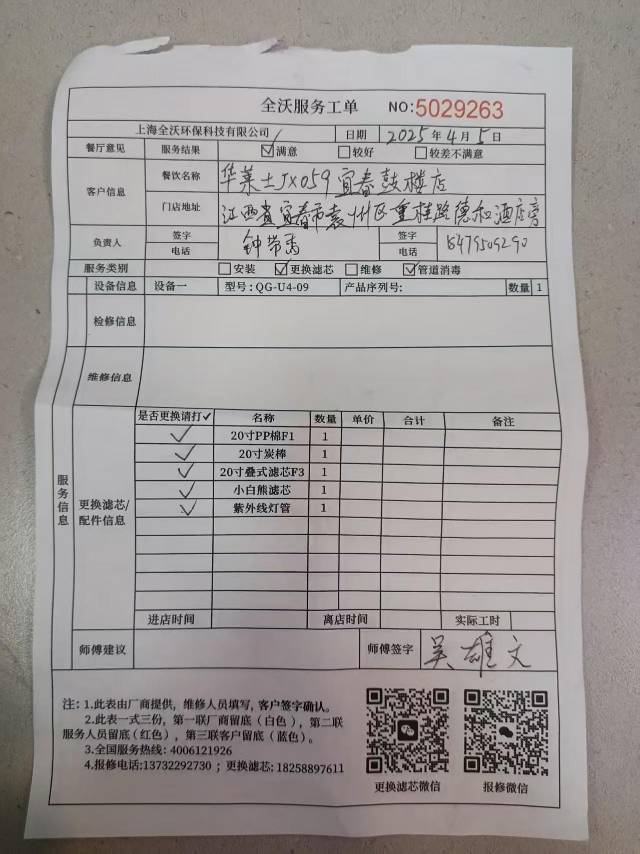 全沃服务工单 NO:5029263
上海全沃环保科技有限公司 日期 2025年4月5日
餐厅意见 服务结果 ☑满意 □较好 □较差不满意
客户信息 餐饮名称 华莱士JX059宜春鼓楼店
门店地址 江西省宜春市袁州区重桂路德和酒店旁
负责人 签字 电话 钟 签字 电话 18479509290
服务类别 □安装 ☑更换滤芯 □维修 ☑管道消毒
设备信息 设备一 型号:QG-U4-09 产品序列号: 数量 1
检修信息
维修信息
服务信息
更换滤芯/配件信息
是否更换请打✓ 名称 数量 单价 合计 备注
✓ 20寸PP棉F1 1
✓ 20寸炭棒 1
✓ 20寸叠式滤芯F3 1
✓ 小白熊滤芯 1
✓ 紫外线灯管 1
进店时间 离店时间 实际工时
师傅建议 师傅签字 吴雄文
注: 1.此表由厂商提供, 维修人员填写, 客户签字确认。
2.此表一式三份, 第一联厂商留底(白色), 第二联
服务人员留底(红色), 第三联客户留底(蓝色)。
3.全国服务热线: 4006121926
4.报修电话:13732292730 ; 更换滤芯: 18258897611
更换滤芯微信 报修微信